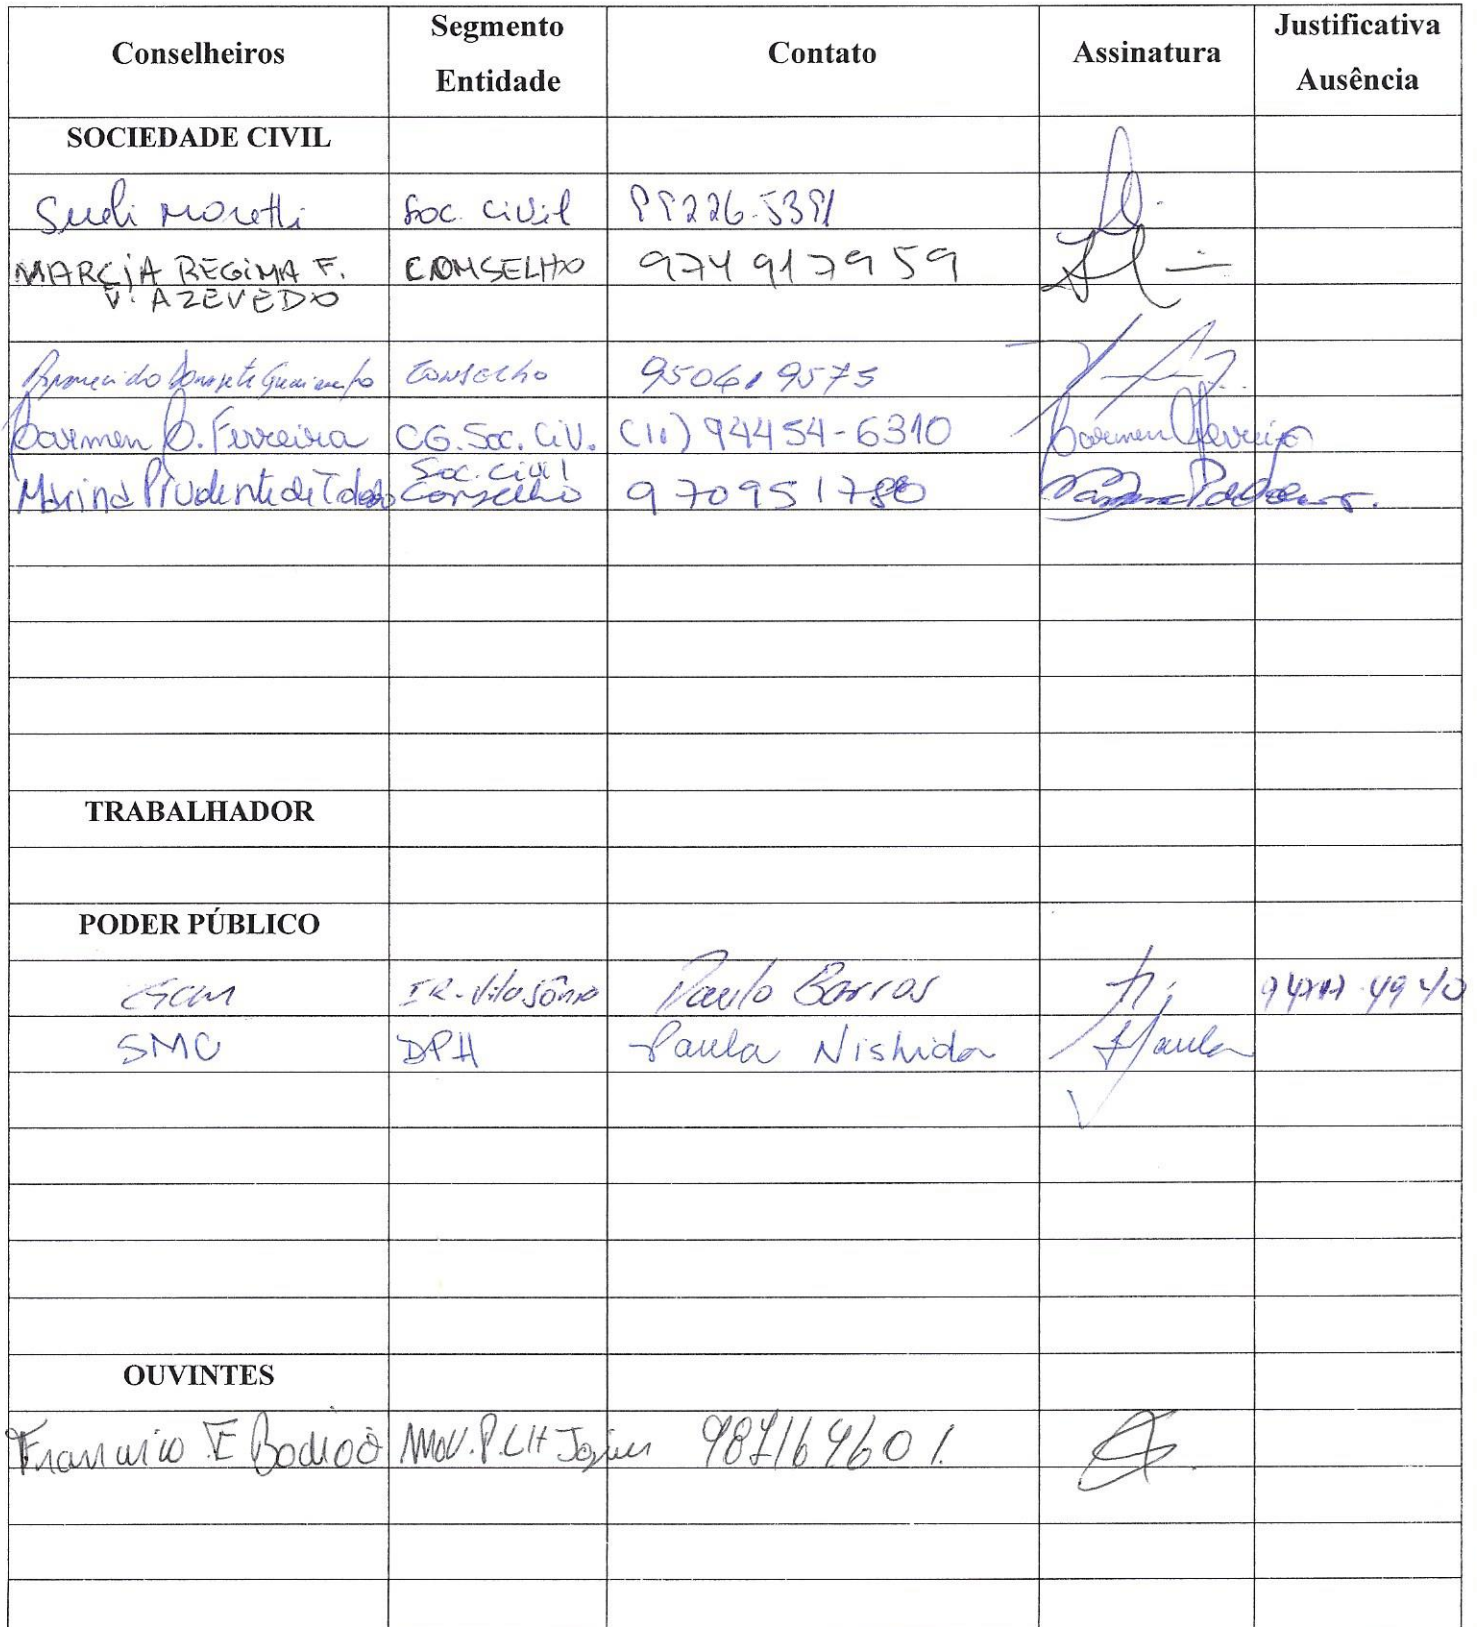 Conselheiros Segmento Entidade Contato Assinatura Justificativa Ausência
SOCIEDADE CIVIL
Sueli Moretti Soc. Civil 99226-5391
MARCIA REGINA F. CONSELHO 974917959
V. AZEVEDO
Aparecido Donizete Conselho 950619575
Carmen D. Ferreira CG. Soc. Civ. (11) 94454-6310 Carmen Ferreira
Soc. Civil
Marina Prudente de Toledo Conselho 970951780
TRABALHADOR
PODER PÚBLICO
GCM IR-Vila Sônia Paulo Barros
SMC DPH Paula Nishida Paula
OUVINTES
Francisco E Mov. P.